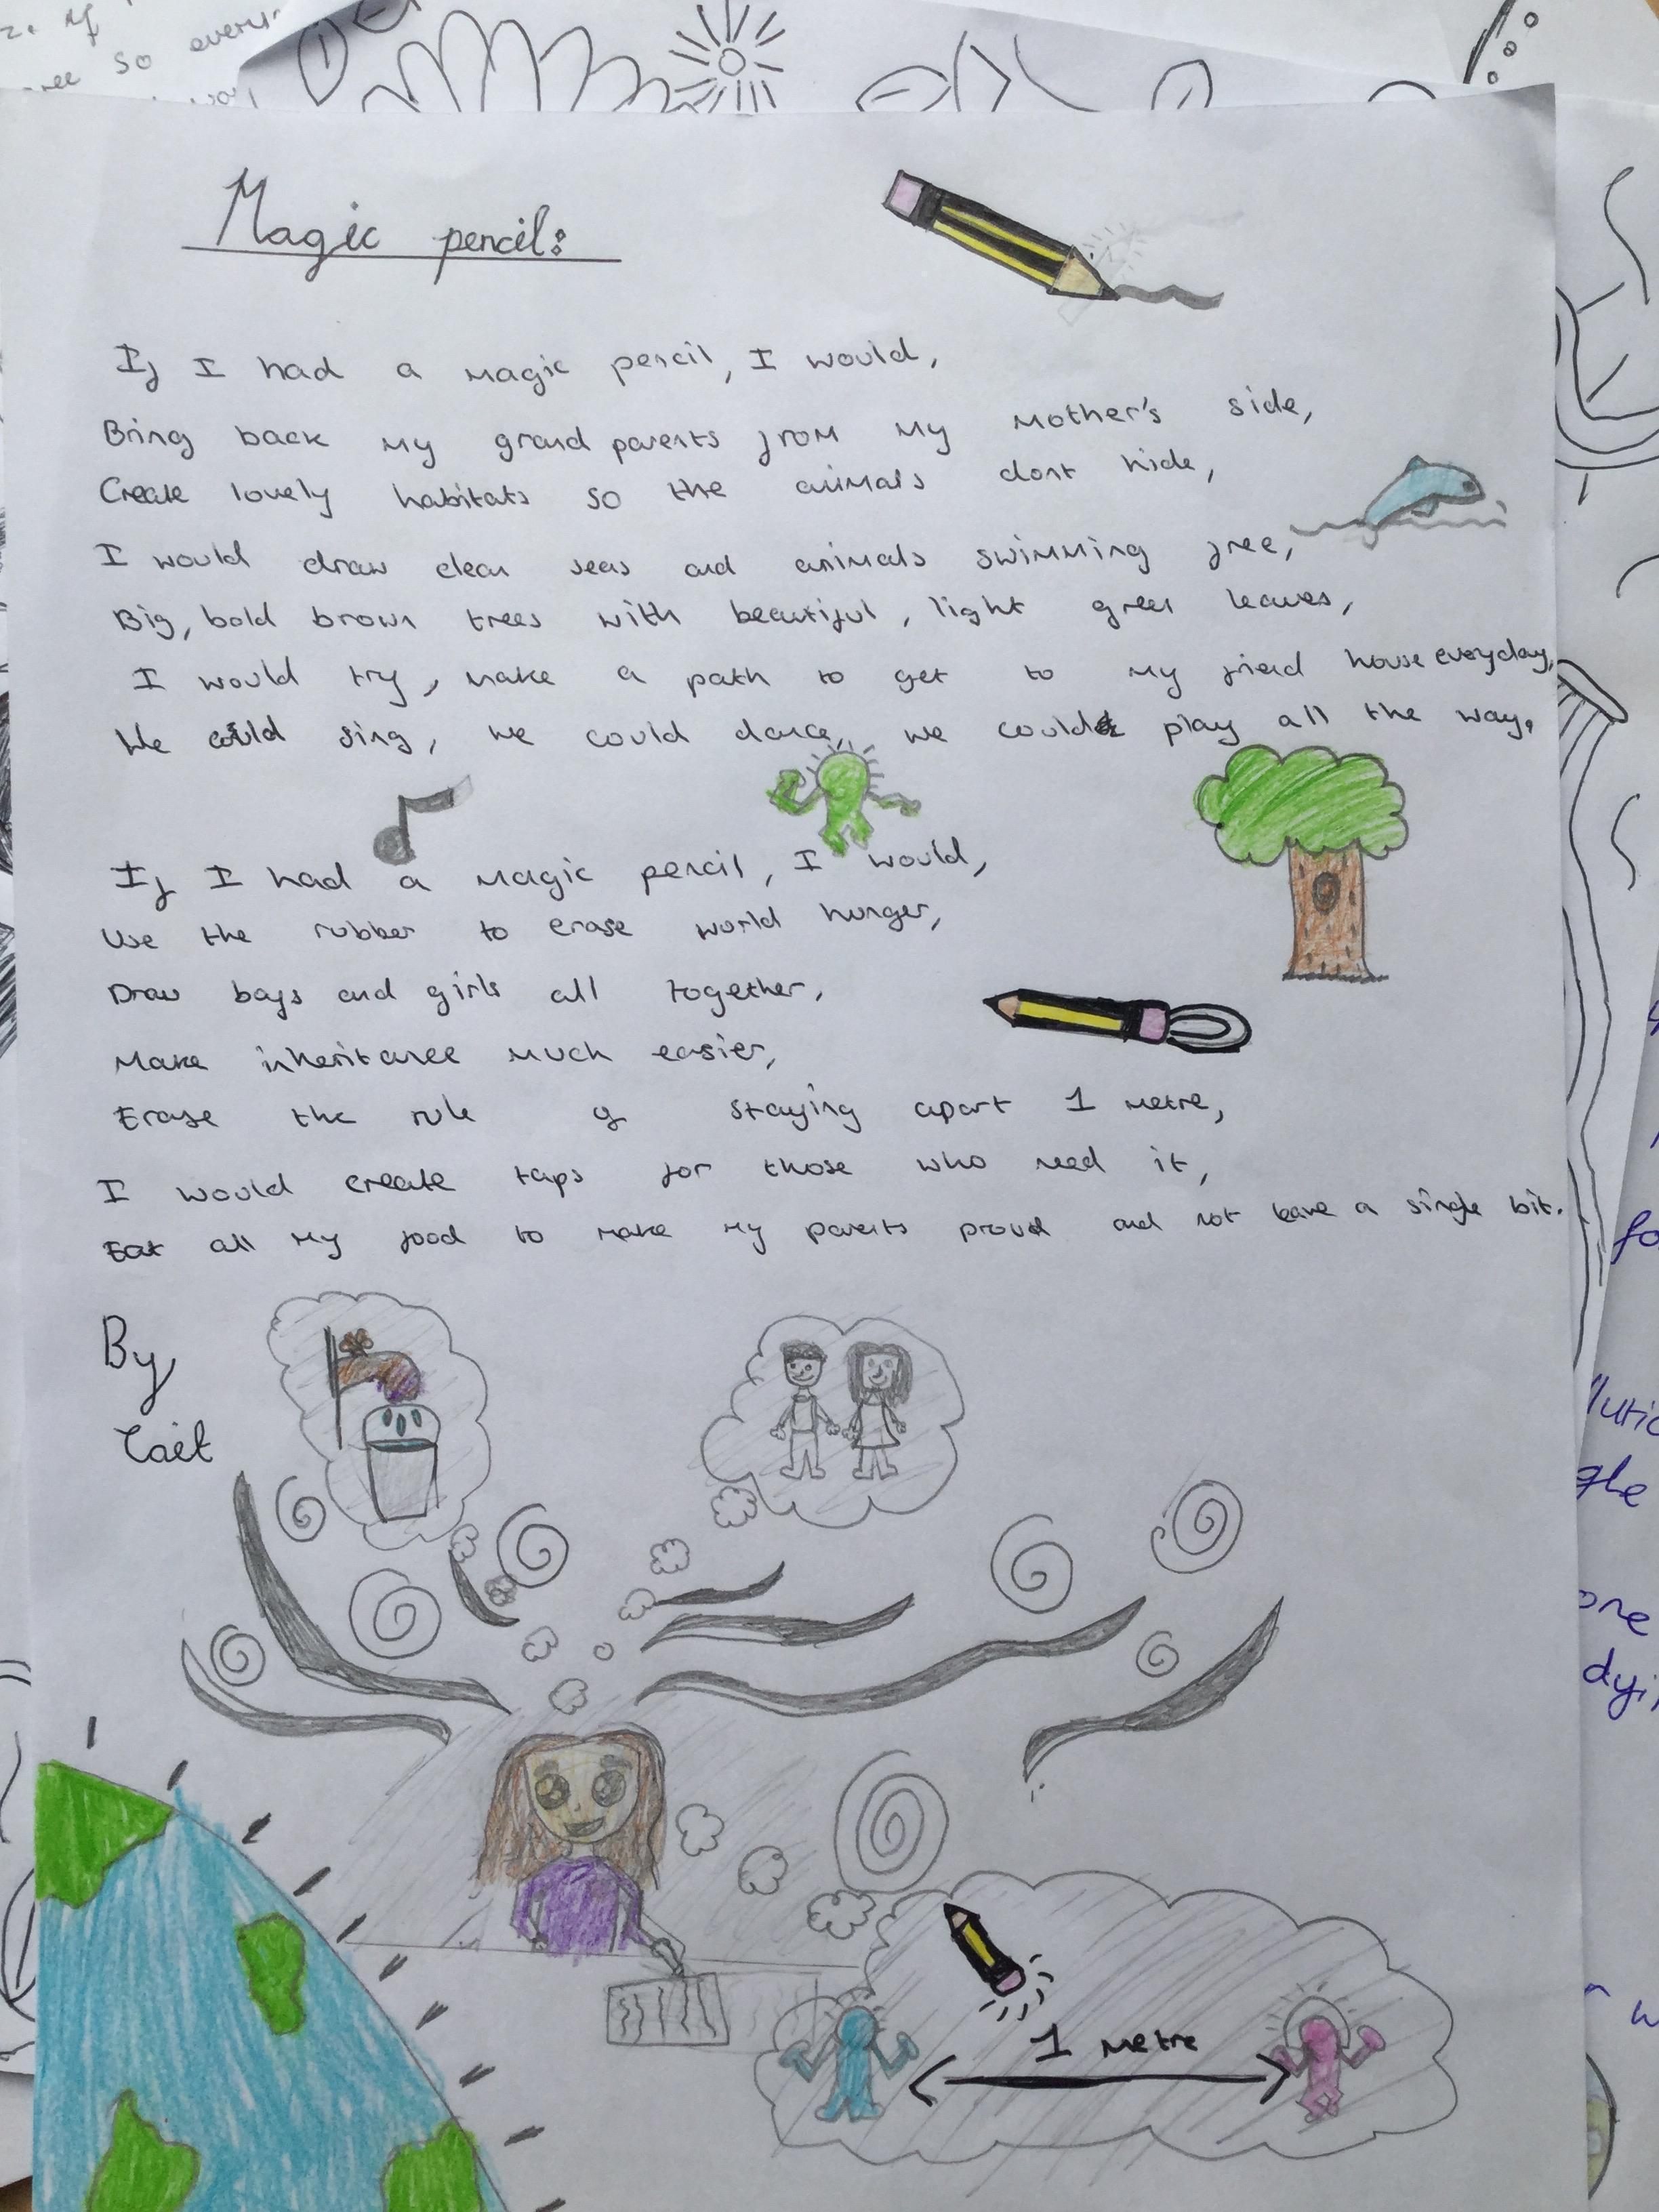 z. if
ree so every
Magic pencil:
If I had a magic pencil, I would,
Bring back my grand parents from my mother's side,
Create lovely habitats so the animals dont hide,
I would draw clean seas and animals swimming free,
Big, bold brown trees with beautiful, light green leaves,
I would try, make a path to get to my friend house everyday,
We could sing, we could dance, we could play all the way.
If I had a magic pencil, I would,
Use the rubber to erase world hunger,
Draw boys and girls all together,
Make inheritance much easier,
Erase the rule of staying apart 1 metre,
I would create taps for those who need it,
Eat all my food to make my parents proud and not leave a single bit.
By
1 metre
fo
one
dyi